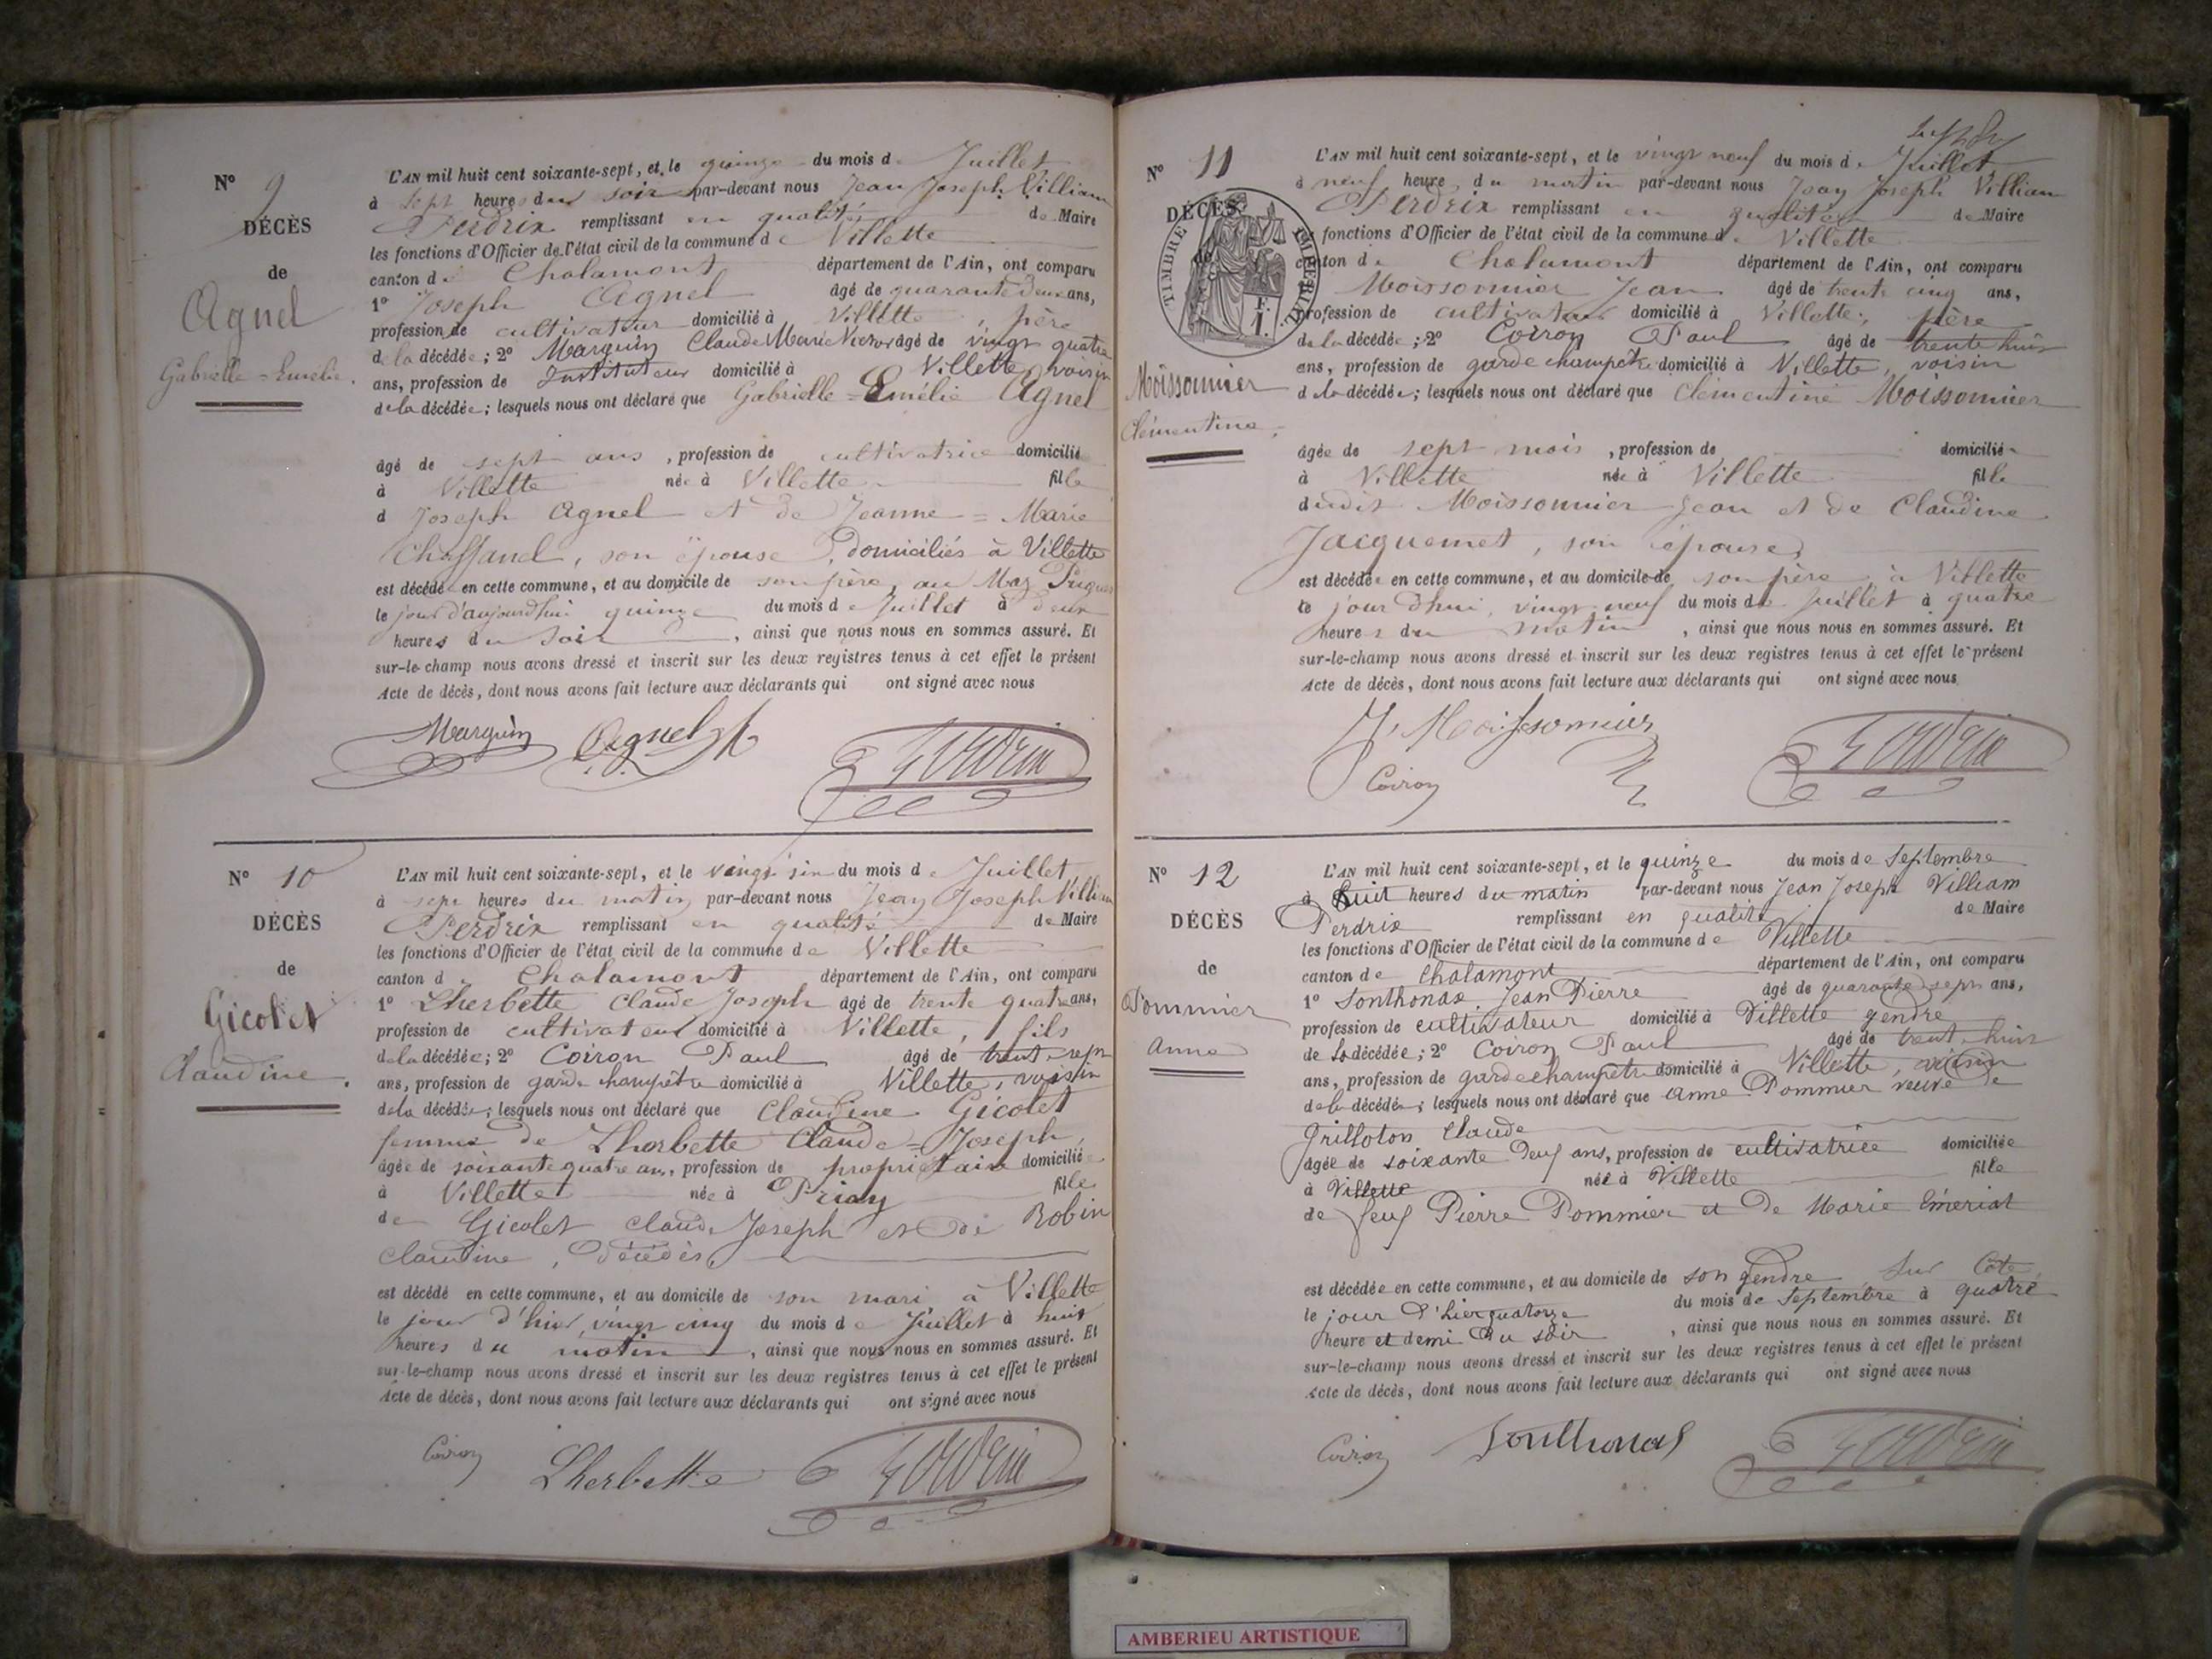 N° 9
DÉCÈS
de
Agnel
Gabrielle = Emélie.
L'AN mil huit cent soixante-sept, et le quinze du mois de Juillet
à sept heures du soir par-devant nous Jean Joseph Villiam
Perdrix remplissant en qualité de Maire
les fonctions d'Officier de l'état civil de la commune de Villette
canton de Chalamont département de l'Ain, ont comparu
1° Joseph Agnel âgé de quarante deux ans,
profession de cultivateur domicilié à Villette, père
de la décédée; 2° Marguin Claude Marie Victor âgé de vingt quatre
ans, profession de Instituteur domicilié à Villette voisin
de la décédée; lesquels nous ont déclaré que Gabrielle = Emélie Agnel
âgé de sept ans, profession de cultivatrice domicilié
à Villette née à Villette fille
d Joseph Agnel et de Jeanne = Marie
son épouse, domiciliés à Villette
est décédée en cette commune, et au domicile de son père, au Maz
le jour d'aujourd'hui quinze du mois de Juillet à deux
heures du soir, ainsi que nous nous en sommes assuré. Et
sur-le-champ nous avons dressé et inscrit sur les deux registres tenus à cet effet le présent
Acte de décès, dont nous avons fait lecture aux déclarants qui ont signé avec nous
Marguin Agnel Perdrix
N° 10
DÉCÈS
de
Gicolet
Claudine.
L'AN mil huit cent soixante-sept, et le vingt six du mois de Juillet
à sept heures du matin par-devant nous Jean Joseph Villiam
Perdrix remplissant en qualité de Maire
les fonctions d'Officier de l'état civil de la commune de Villette
canton de Chalamont département de l'Ain, ont comparu
1° Lherbette Claude Joseph âgé de trente quatre ans,
profession de cultivateur domicilié à Villette, fils
de la décédée; 2° Coiron Paul âgé de trente sept
ans, profession de garde champêtre domicilié à Villette, voisin
de la décédée; lesquels nous ont déclaré que Claudine Gicolet
femme de Lherbette Claude = Joseph,
âgée de soixante quatre ans, profession de propriétaire domiciliée
à Villette née à Priay fille
de Gicolet Claude Joseph et de Robin
Claudine, décédés,
est décédé en cette commune, et au domicile de son mari à Villette
le jour d'hier, vingt cinq du mois de Juillet à huit
heures du matin, ainsi que nous nous en sommes assuré. Et
sur-le-champ nous avons dressé et inscrit sur les deux registres tenus à cet effet le présent
Acte de décès, dont nous avons fait lecture aux déclarants qui ont signé avec nous
Coiron Lherbette Perdrix
N° 11
DÉCÈS
de
TIMBRE IMPERIAL
Moissonnier
Clémentine.
L'AN mil huit cent soixante-sept, et le vingt neuf du mois de Juillet,
à neuf heure du matin par-devant nous Jean Joseph Villiam
Perdrix remplissant en qualité de Maire
fonctions d'Officier de l'état civil de la commune de Villette
canton de Chalamont département de l'Ain, ont comparu
Moissonnier Jean âgé de trente cinq ans,
profession de cultivateur domicilié à Villette, père
de la décédée; 2° Coiron Paul âgé de trente huit
ans, profession de garde champêtre domicilié à Villette, voisin
de la décédée; lesquels nous ont déclaré que Clémentine Moissonnier
âgée de sept mois, profession de domicilié
à Villette née à Villette fille
dudit Moissonnier Jean et de Claudine
Jacquemet, son épouse,
est décédée en cette commune, et au domicile de son père, à Villette
le jour d'hui, vingt neuf du mois de Juillet à quatre
heures du matin, ainsi que nous nous en sommes assuré. Et
sur-le-champ nous avons dressé et inscrit sur les deux registres tenus à cet effet le présent
Acte de décès, dont nous avons fait lecture aux déclarants qui ont signé avec nous
J. Moissonnier Perdrix
Coiron
N° 12
DÉCÈS
de
Pommier
Anne
L'AN mil huit cent soixante-sept, et le quinze du mois de Septembre
à huit heures du matin par-devant nous Jean Joseph Villiam
Perdrix remplissant en qualité de Maire
les fonctions d'Officier de l'état civil de la commune de Villette
canton de Chalamont département de l'Ain, ont comparu
1° Sonthonax Jean Pierre âgé de quarante sept ans,
profession de cultivateur domicilié à Villette gendre
de la décédée; 2° Coiron Paul âgé de trent huit
ans, profession de garde champêtre domicilié à Villette, voisin
de la décédée; lesquels nous ont déclaré que Anne Pommier veuve de
Grilloton Claude
âgée de soixante deux ans, profession de cultivatrice domiciliée
à Villette née à Villette fille
de feux Pierre Pommier et de Marie Emeriat
est décédée en cette commune, et au domicile de son gendre sur Côte
le jour d'hier quatorze du mois de Septembre à quatre
heure et demi du soir, ainsi que nous nous en sommes assuré. Et
sur-le-champ nous avons dressé et inscrit sur les deux registres tenus à cet effet le présent
Acte de décès, dont nous avons fait lecture aux déclarants qui ont signé avec nous
Coiron Sonthonax Perdrix
AMBERIEU ARTISTIQUE